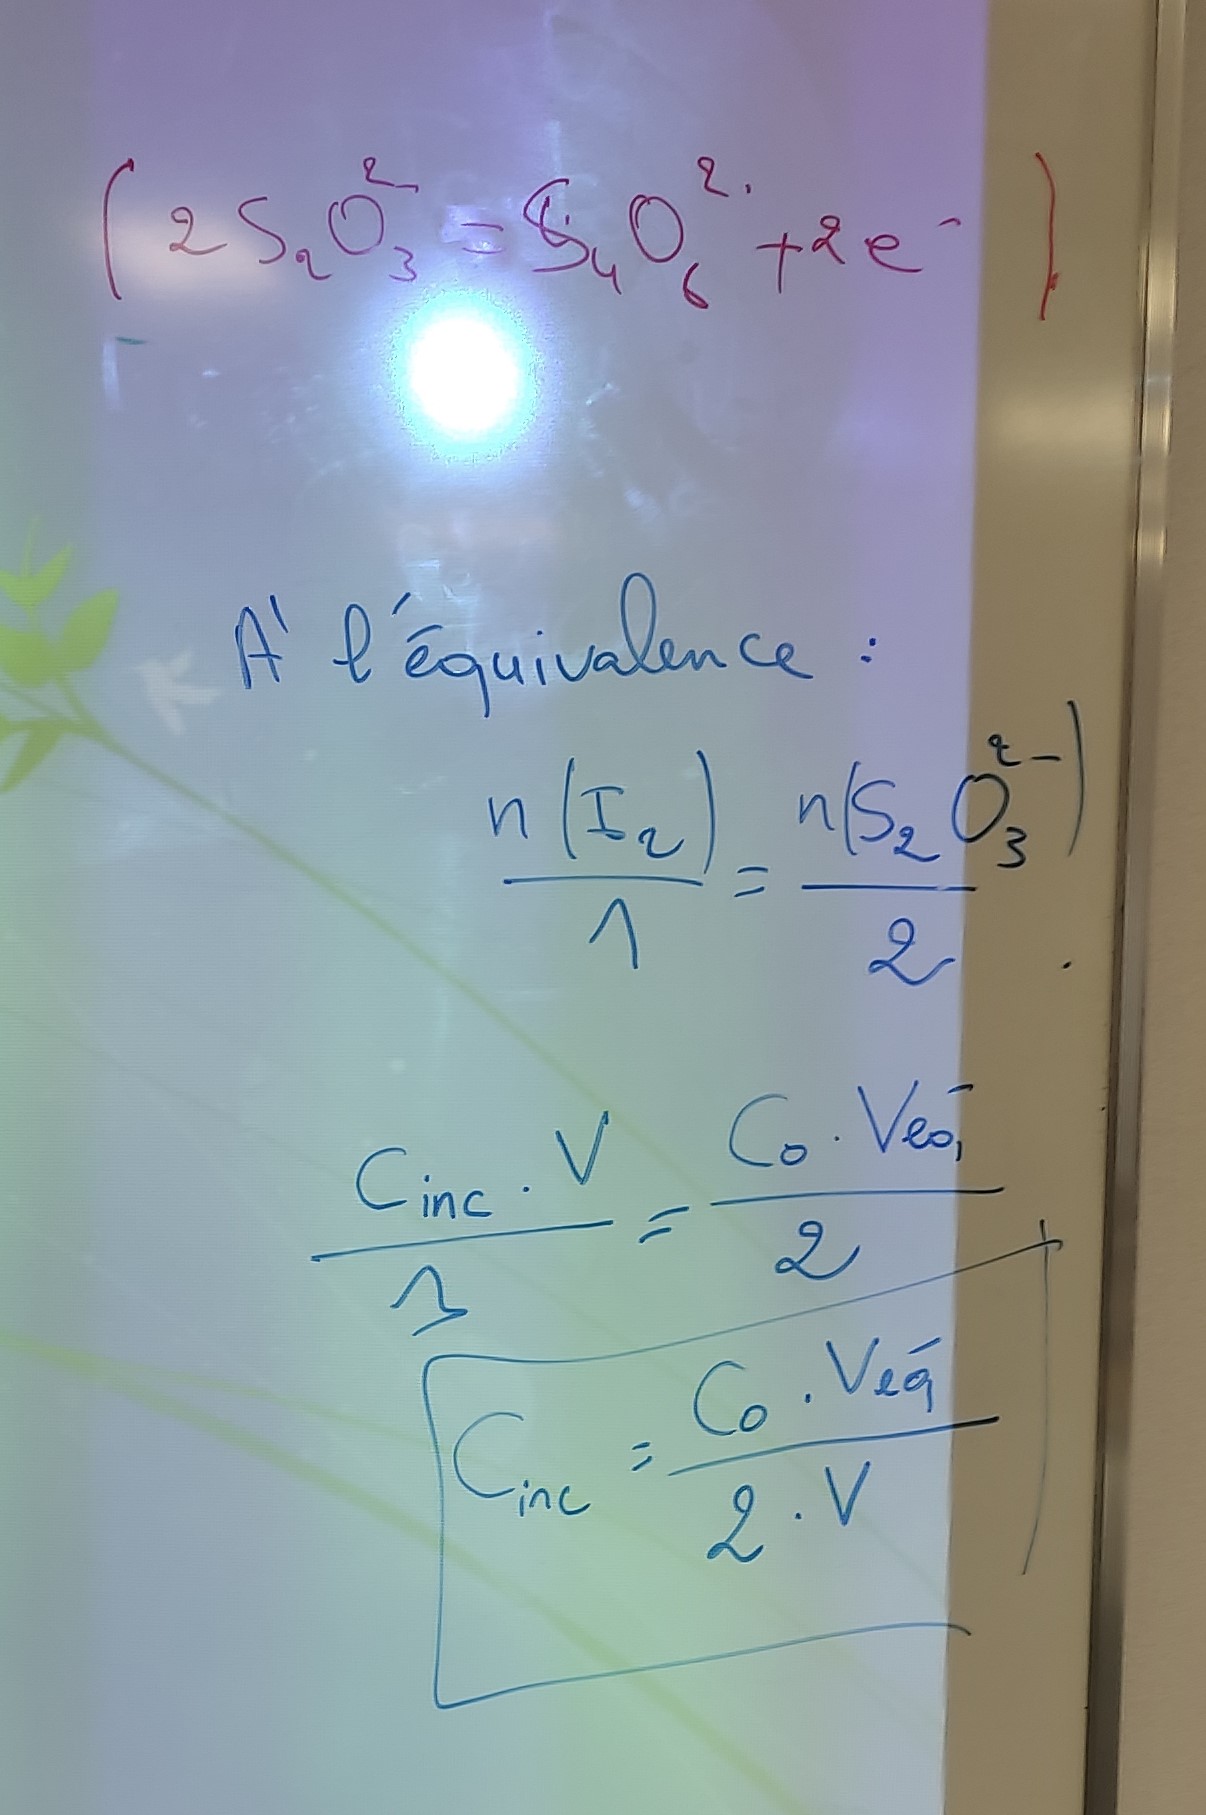 ( 2 S₂O₃²⁻ = S₄O₆²⁻ + 2e⁻ )
A' l'équivalence :
n(I₂)/1 = n(S₂O₃²⁻)/2
C inc . V / 1 = C₀ . Véq / 2
C inc = C₀ . Véq / 2 . V